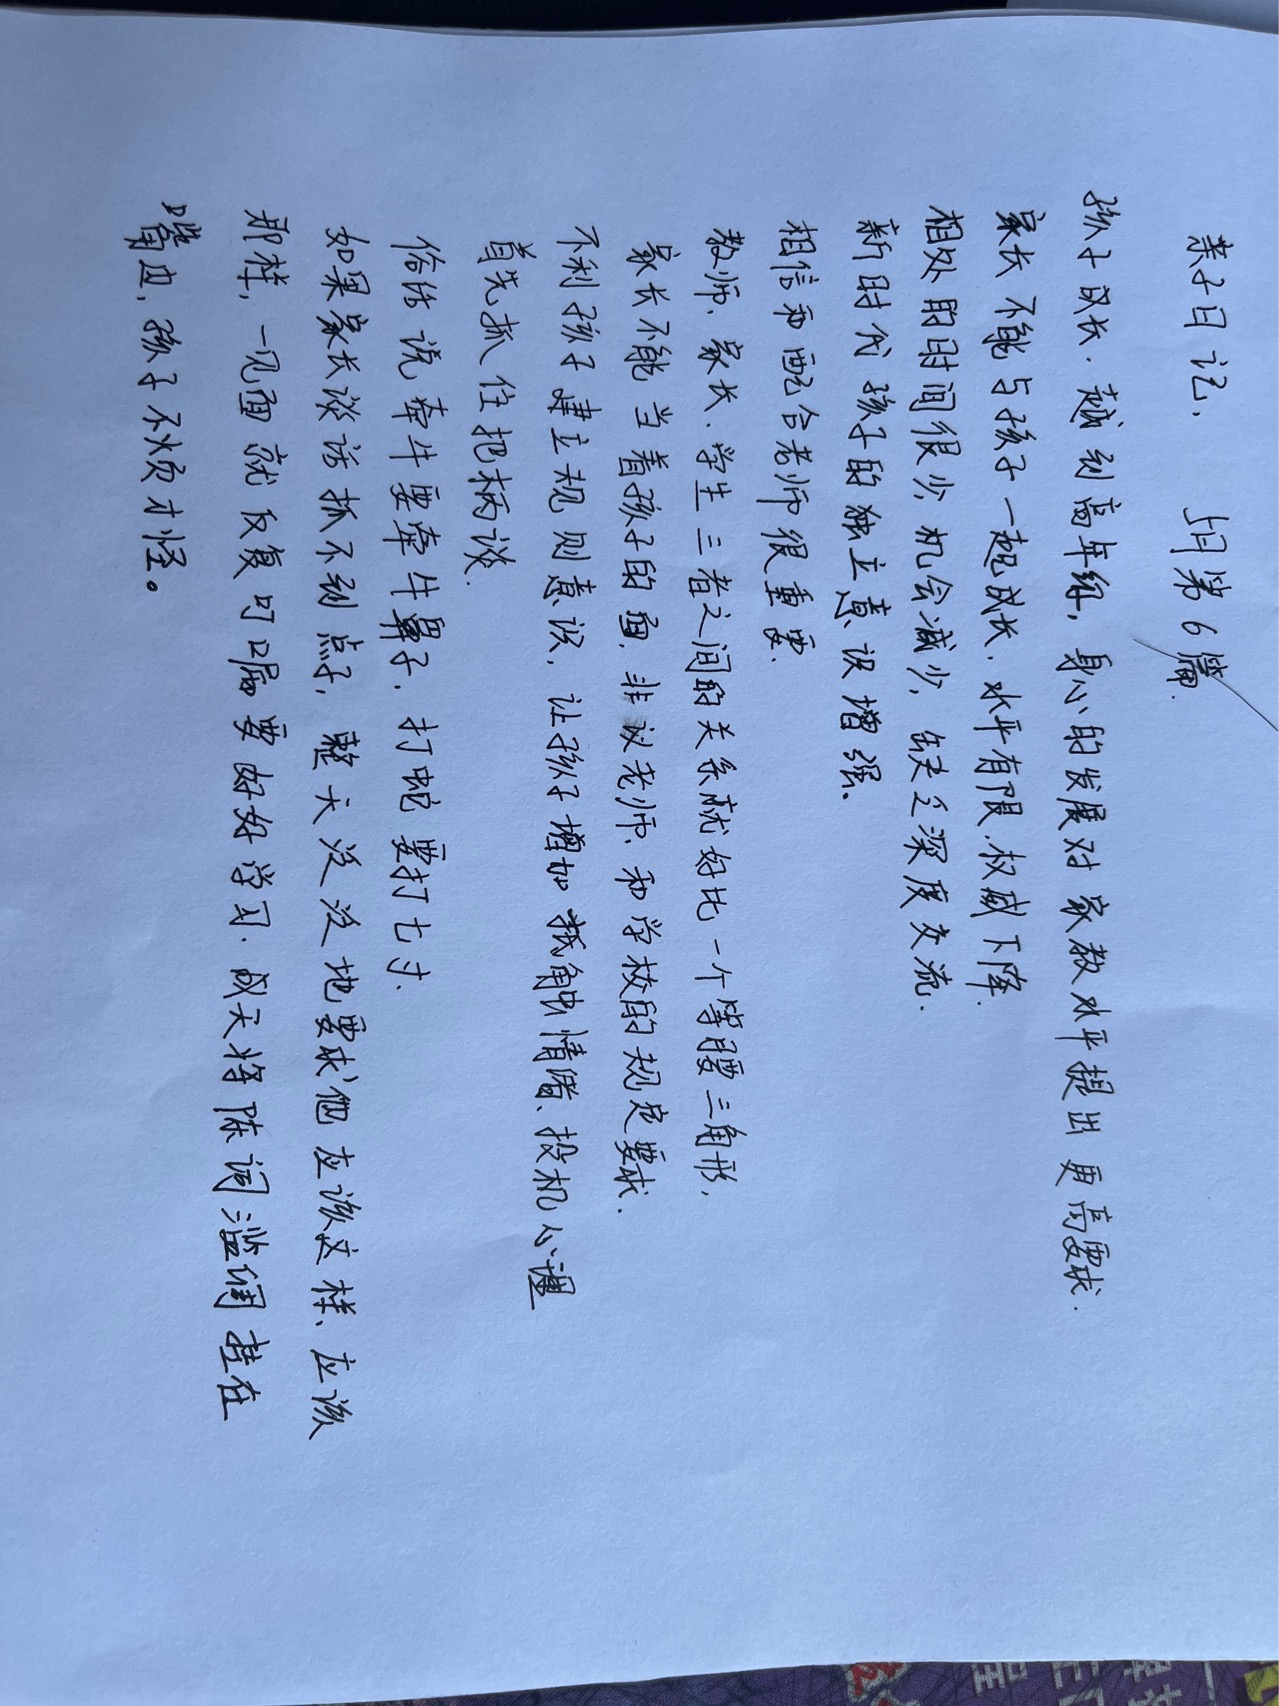 亲子日记、 5月第6篇.
孩子成长.越到高年级,身心的发展对家教水平提出更高要求.
家长不能与孩子一起成长.水平有限.权威下降.
相处的时间很少,机会减少,缺乏深度交流.
新时代孩子的独立意识增强.
相信和配合老师很重要.
教师、家长.学生三者之间的关系就好比一个等腰三角形,
家长不能当着孩子的面,非议老师,和学校的规定要求.
不利孩子建立规则意识,让孩子增加抵触情绪、投机心理
首先抓住把柄谈.
俗话说牵牛要牵牛鼻子.打蛇要打七寸.
如果家长谈话抓不到点子,整天泛泛地要求他应该这样、应该
那样,一见面就反复叮嘱要好好学习.成天将陈词滥调挂在
嘴边,孩子不烦才怪。